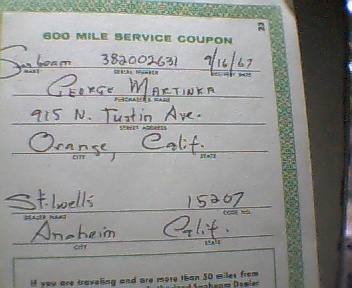 23
600 MILE SERVICE COUPON
Sunbeam 382002631 9/16/67
MAKE SERIAL NUMBER DELIVERY DATE
GEORGE MARTINKA
PURCHASER'S NAME
915 N. Tustin Ave.
STREET ADDRESS
Orange, Calif.
CITY STATE
Stilwells 15207
DEALER NAME CODE NO.
Anaheim Calif.
CITY STATE
If you are traveling and are more than 50 miles from
Sunbeam Dealer